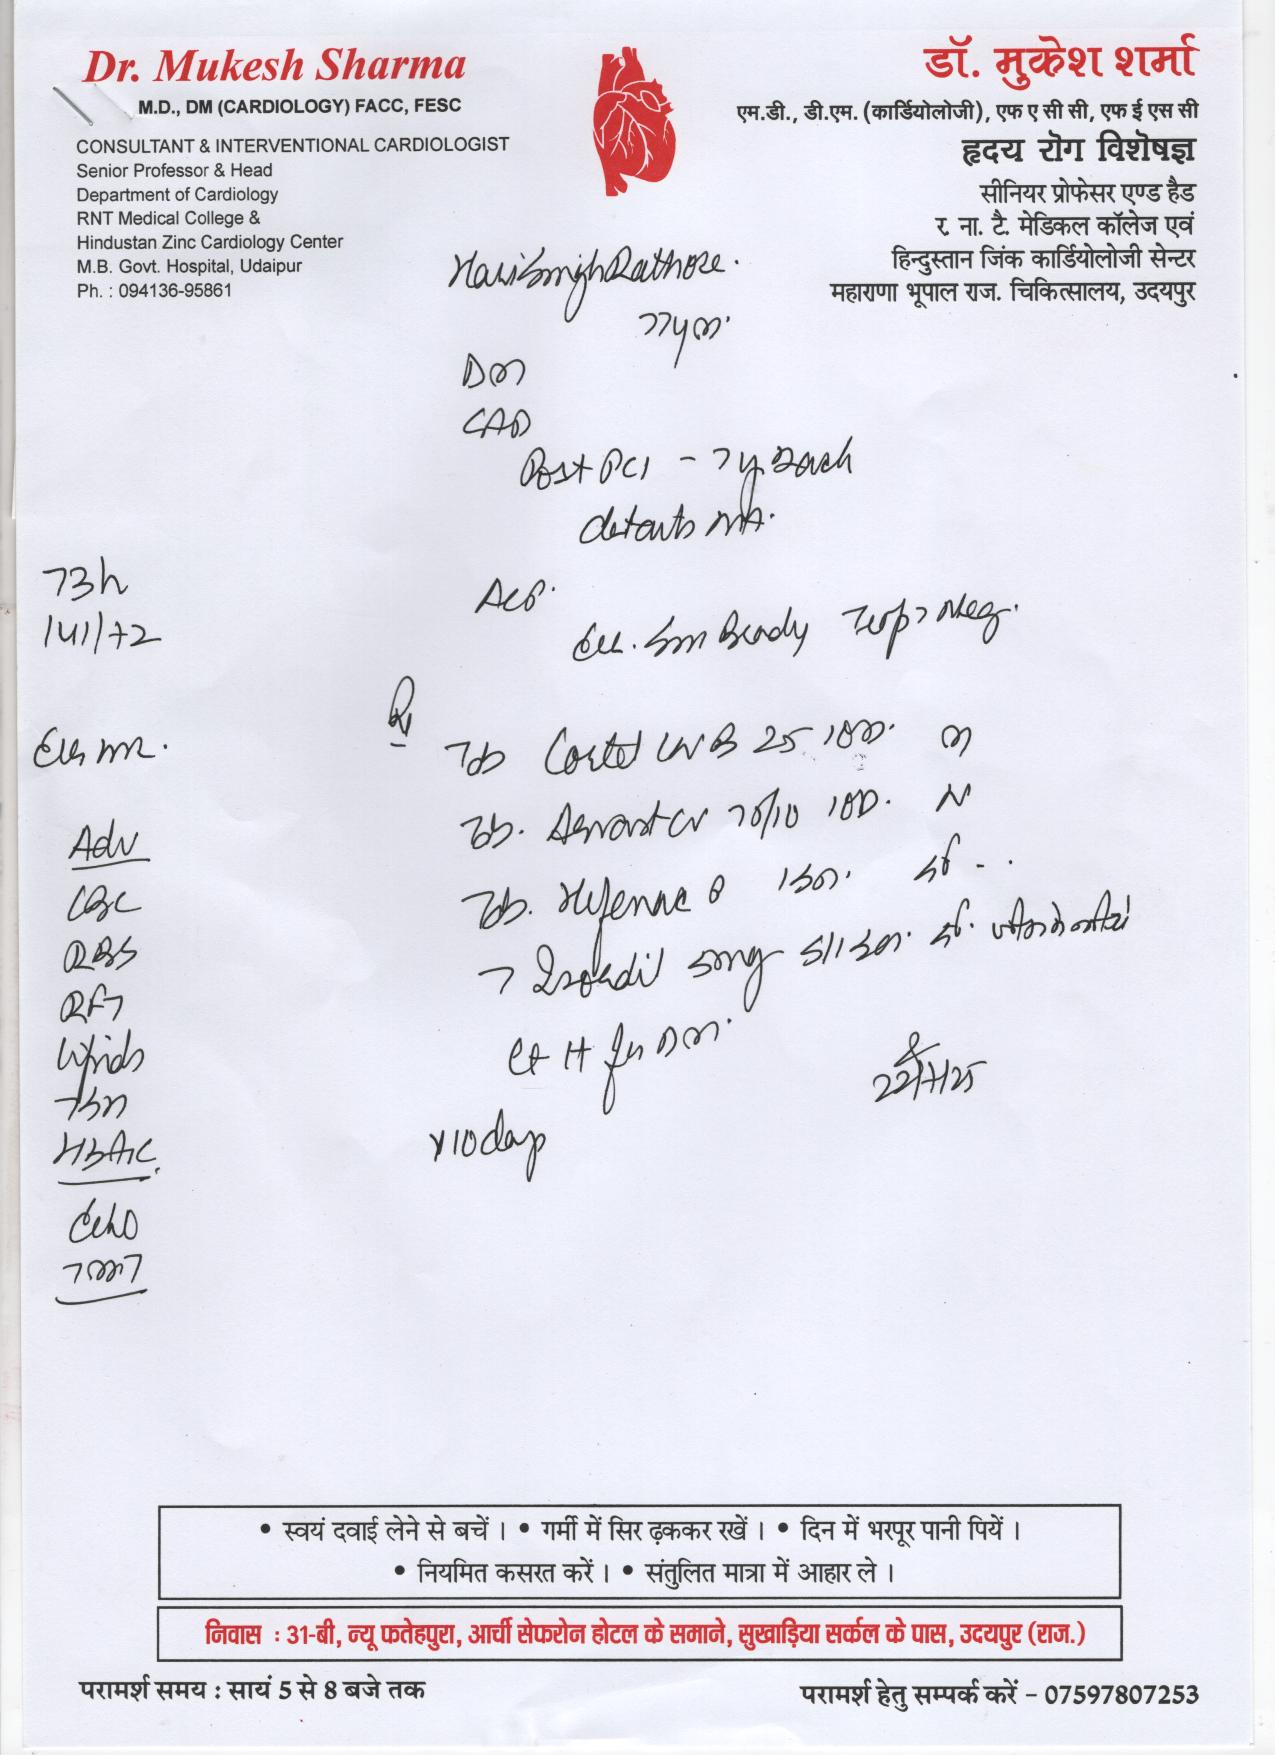 Dr. Mukesh Sharma
M.D., DM (CARDIOLOGY) FACC, FESC
CONSULTANT & INTERVENTIONAL CARDIOLOGIST
Senior Professor & Head
Department of Cardiology
RNT Medical College &
Hindustan Zinc Cardiology Center
M.B. Govt. Hospital, Udaipur
Ph. : 094136-95861
डॉ. मुकेश शर्मा
एम.डी., डी.एम. (कार्डियोलोजी), एफ ए सी सी, एफ ई एस सी
हृदय रोग विशेषज्ञ
सीनियर प्रोफेसर एण्ड हैड
र. ना. टै. मेडिकल कॉलेज एवं
हिन्दुस्तान जिंक कार्डियोलोजी सेन्टर
महाराणा भूपाल राज. चिकित्सालय, उदयपुर
Hari Singh Rathore.
77y m.
DM
CAD
Post PCI - 7 y back
details NA.
73k
141/72
ACS.
Trop T Neg.
Rx
Tab 25 1OD. M
Adv
Tab. 75/10 1OD. N
CBC
Tab.
RBS
T Isordil 5mg S/L SOS. जीभ के नीचे
RFT
Ct for DM.
Lipids
22/1/25
TSH
x 10 days
HBA1C
Echo
TMT
• स्वयं दवाई लेने से बचें । • गर्मी में सिर ढ़ककर रखें । • दिन में भरपूर पानी पियें ।
• नियमित कसरत करें । • संतुलित मात्रा में आहार ले ।
निवास : 31-बी, न्यू फतेहपुरा, आर्ची सेफरोन होटल के समाने, सुखाड़िया सर्कल के पास, उदयपुर (राज.)
परामर्श समय : सायं 5 से 8 बजे तक
परामर्श हेतु सम्पर्क करें - 07597807253